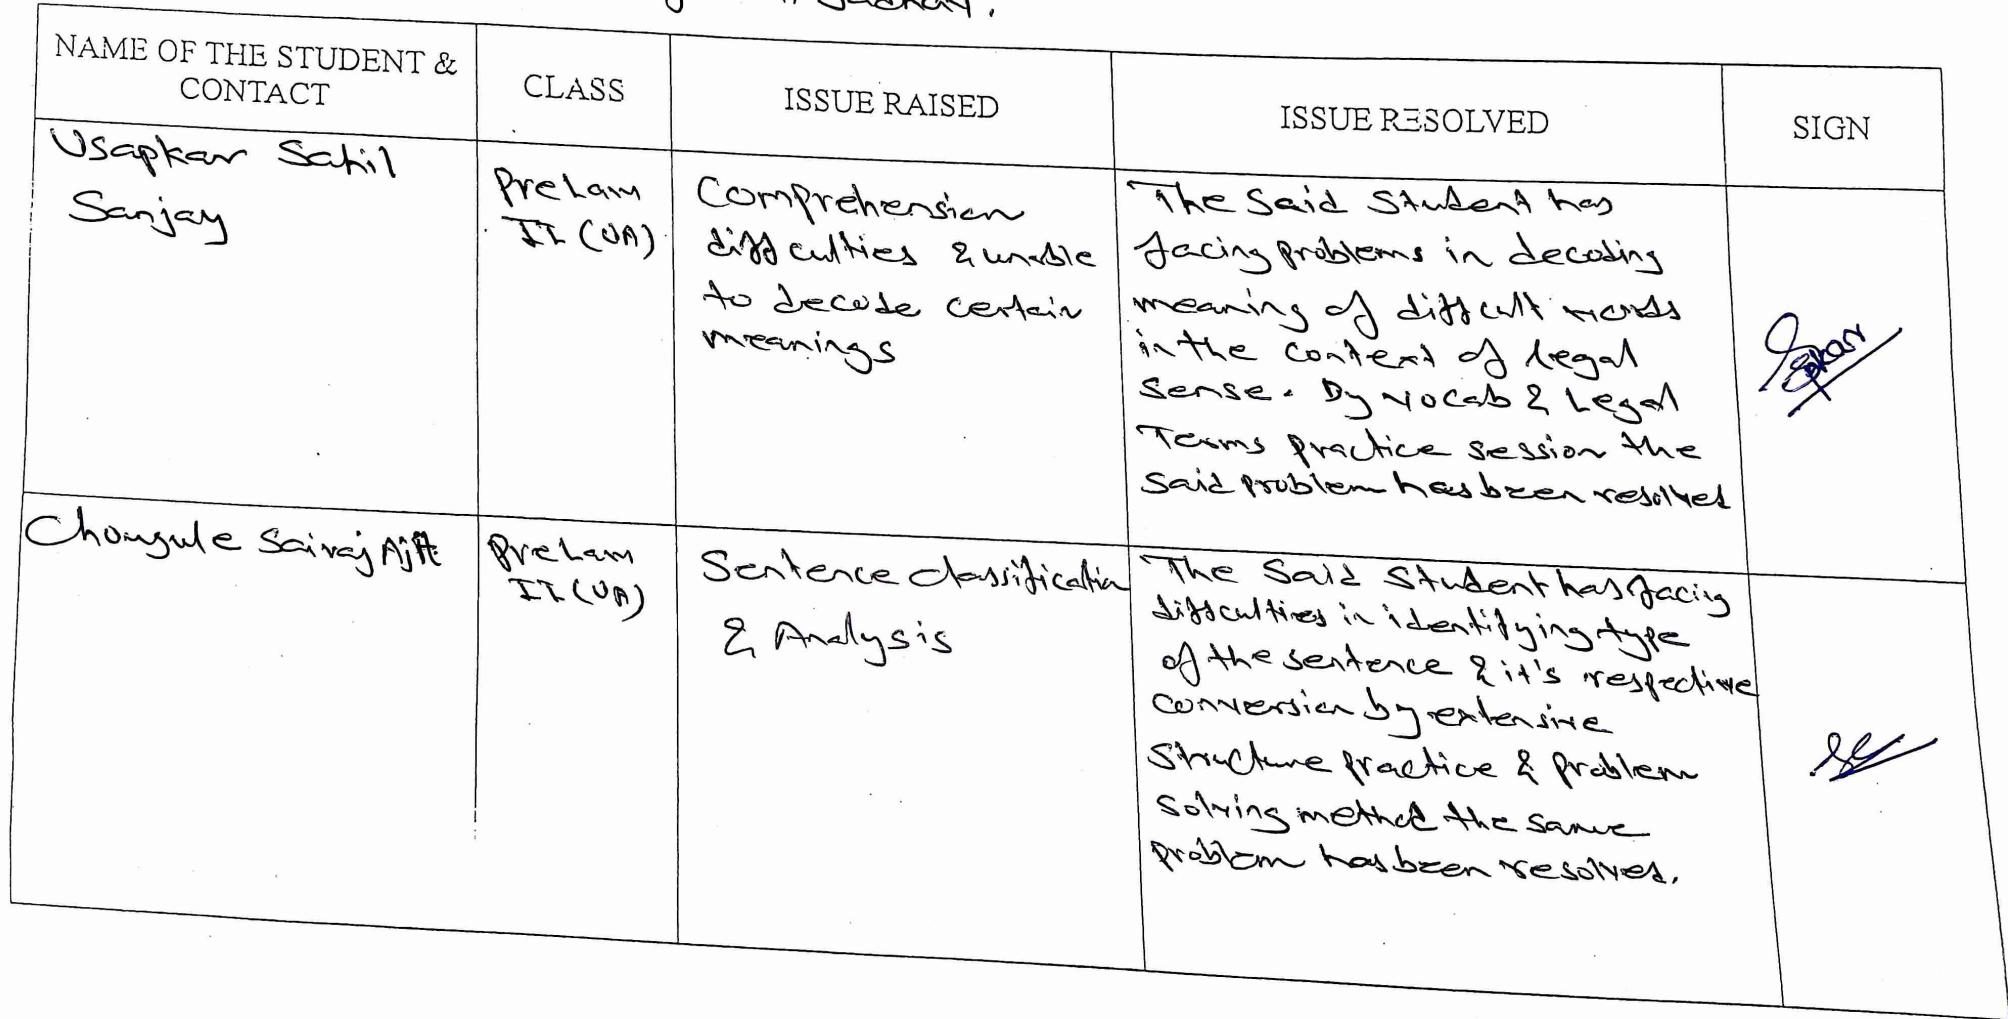 NAME OF THE STUDENT &
CONTACT
CLASS
ISSUE RAISED
ISSUE RESOLVED
SIGN
Usapkar Sahil
Sanjay
PreLaw
II (UA)
Comprehension
difficulties & unable
to decode certain
meanings
The Said Student has
facing problems in decoding
meaning of difficult words
in the context of legal
sense. By Vocab & Legal
Terms practice session the
said problem has been resolved
Chougule Sairaj Ajit
PreLaw
II (UA)
Sentence classification
& Analysis
The Said Student has facing
difficulties in identifying type
of the sentence & it's respective
conversion by extensive
Structure practice & problem
solving method the same
problem has been resolved.